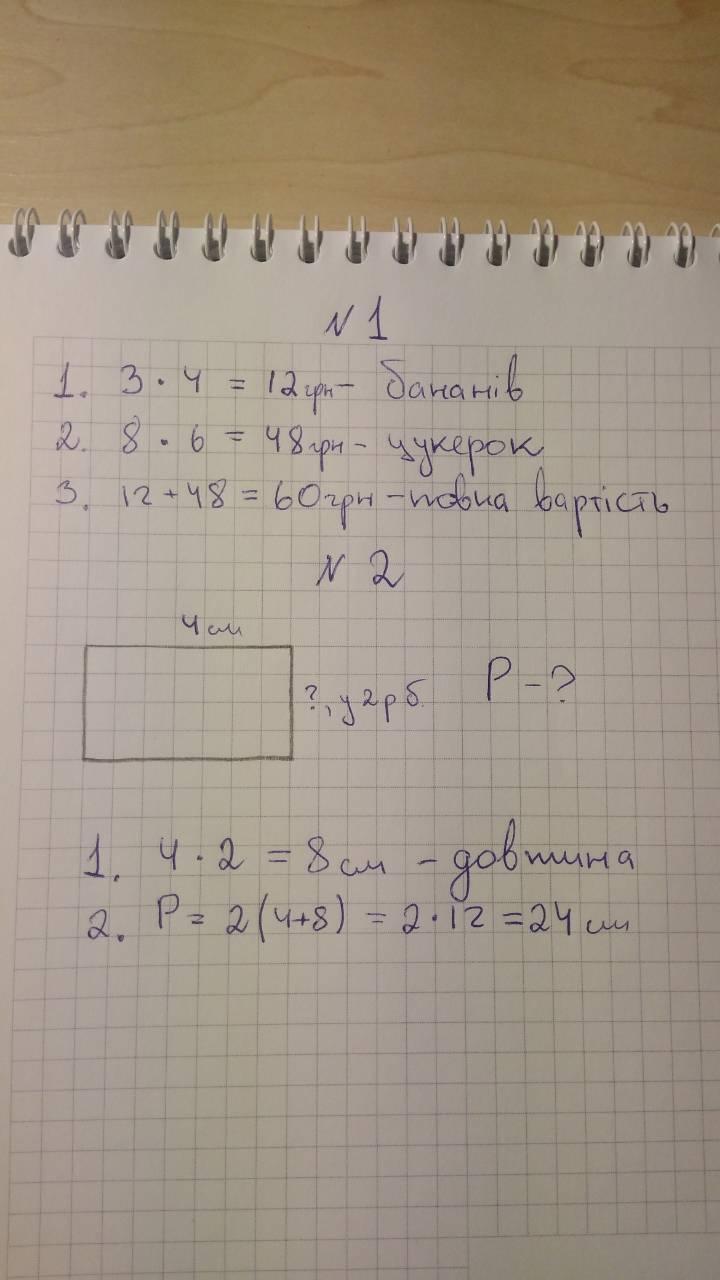 N 1
1. 3 · 4 = 12 грн - бананів
2. 8 · 6 = 48 грн - цукерок
3. 12 + 48 = 60 грн - повна вартість
N 2
4 см
?, у 2 р б. P - ?
1. 4 · 2 = 8 см - довжина
2. P = 2(4+8) = 2 · 12 = 24 см